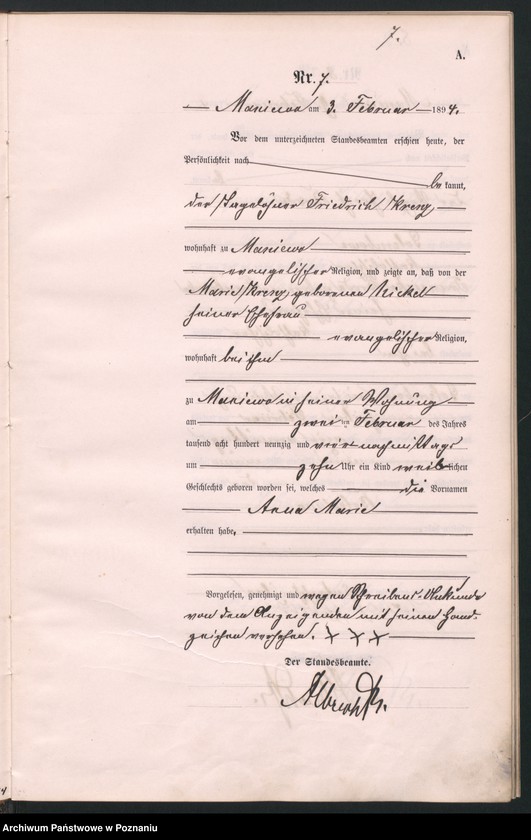 7.
A.
Nr. 7.
Maniewo am 3. Februar 1894.
Vor dem unterzeichneten Standesbeamten erschien heute, der
Persönlichkeit nach
be kannt,
der Tagelöhner Friedrich Krenz
wohnhaft zu Maniewo
evangelischer Religion, und zeigte an, daß von der
Marie Krenz geborenen Nickel
seiner Ehefrau
evangelischer Religion,
wohnhaft bei ihm
zu Maniewo in seiner Wohnung
am zwei ten Februar des Jahres
tausend acht hundert neunzig und vier nachmittags
um zehn Uhr ein Kind weib lichen
Geschlechts geboren worden sei, welches die Vornamen
Anna Marie
erhalten habe.
Vorgelesen, genehmigt und wegen Schreibens-Unkunde
von dem Anzeigenden mit seinen Hand-
zeichen versehen. X X X
Der Standesbeamte.
Albrecht
Archiwum Państwowe w Poznaniu